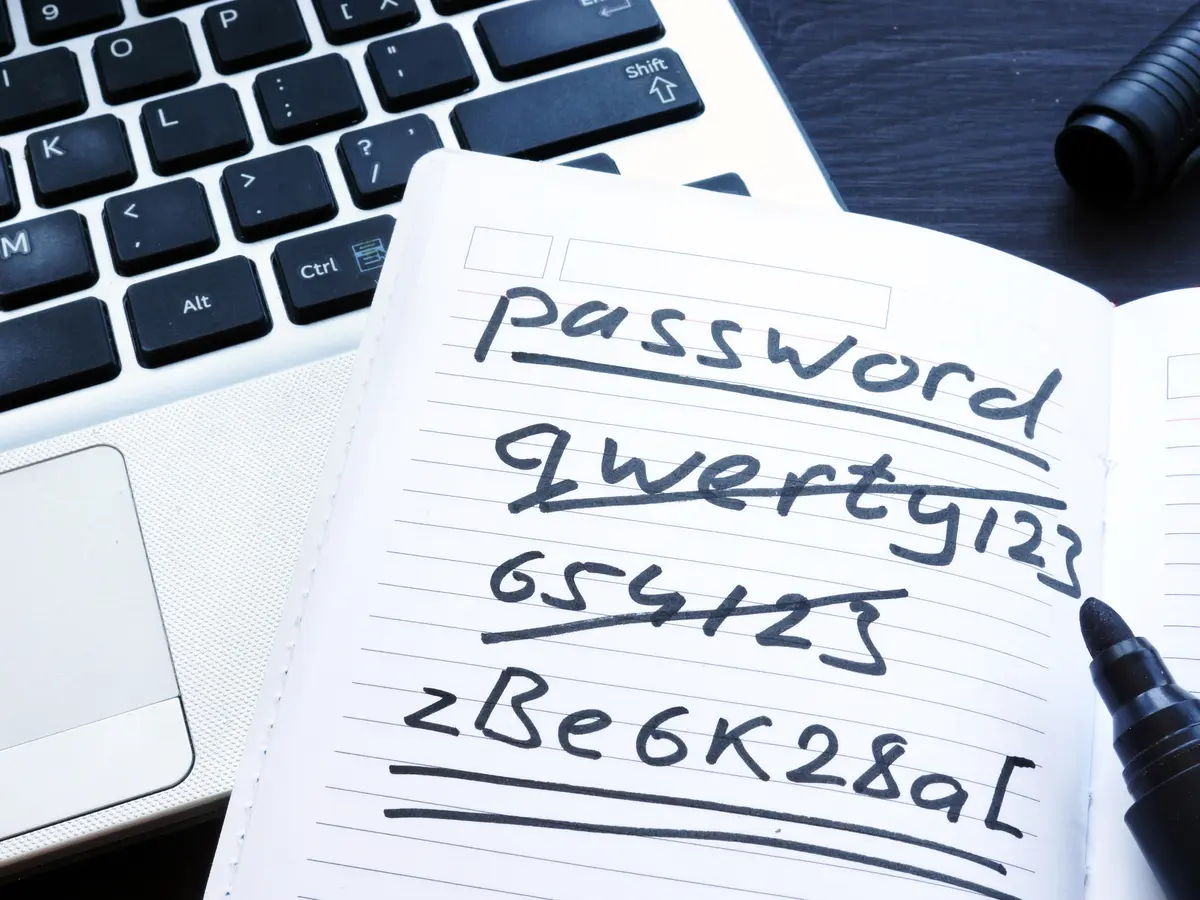 9
O P [
I L ; : ' " Enter
K > . ? / Shift
M < ,
Alt Ctrl
password
qwerty123
654123
zBe6K28a[